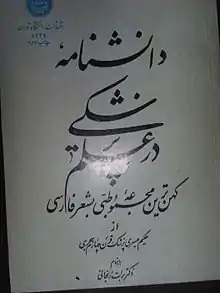 انتشارات دانشگاه تهران
دانشنامه
در علم پزشکی
کهن‌ترین مجموعهٔ طبی به شعر فارسی
از
حکیم میسری پزشک قرن چهارم هجری
باهتمام
دکتر برات زنجانی